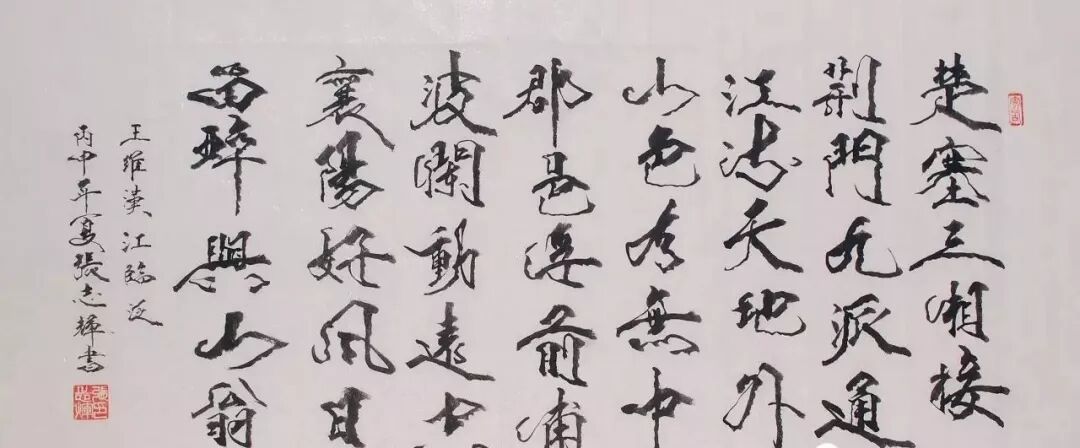 楚塞三湘接
荆門九派通
江流天地外
山色有無中
郡邑浮前浦
波瀾動遠
襄陽好風日
留醉與山翁
王維漢江臨泛
丙申年夏張志輝書